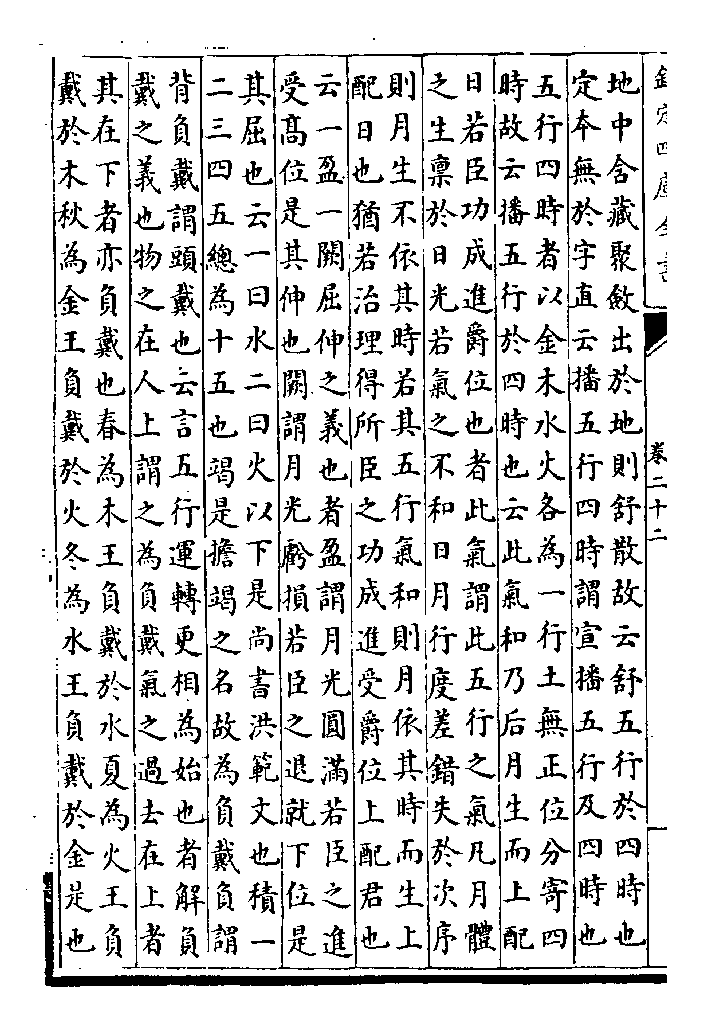 欽定四庫全書
卷二十二
地中含藏聚斂出於地則舒散故云舒五行於四時也
定本無於字直云播五行四時謂宣播五行及四時也
五行四時者以金木水火各為一行土無正位分寄四
時故云播五行於四時也云此氣和乃后月生而上配
日若臣功成進爵位也者此氣謂此五行之氣凡月體
之生稟於日光若氣之不和日月行度差錯失於次序
則月生不依其時若其五行氣和則月依其時而生上
配日也猶若治理得所臣之功成進受爵位上配君也
云一盈一闕屈伸之義也者盈謂月光圓滿若臣之進
受髙位是其伸也闕謂月光虧損若臣之退就下位是
其屈也云一曰水二曰火以下是尚書洪範文也積一
二三四五總為十五也竭是擔竭之名故為負戴負謂
背負戴謂頭戴也云言五行運轉更相為始也者解負
戴之義也物之在人上謂之為負戴氣之過去在上者
其在下者亦負戴也春為木王負戴於水夏為火王負
戴於木秋為金王負戴於火冬為水王負戴於金是也